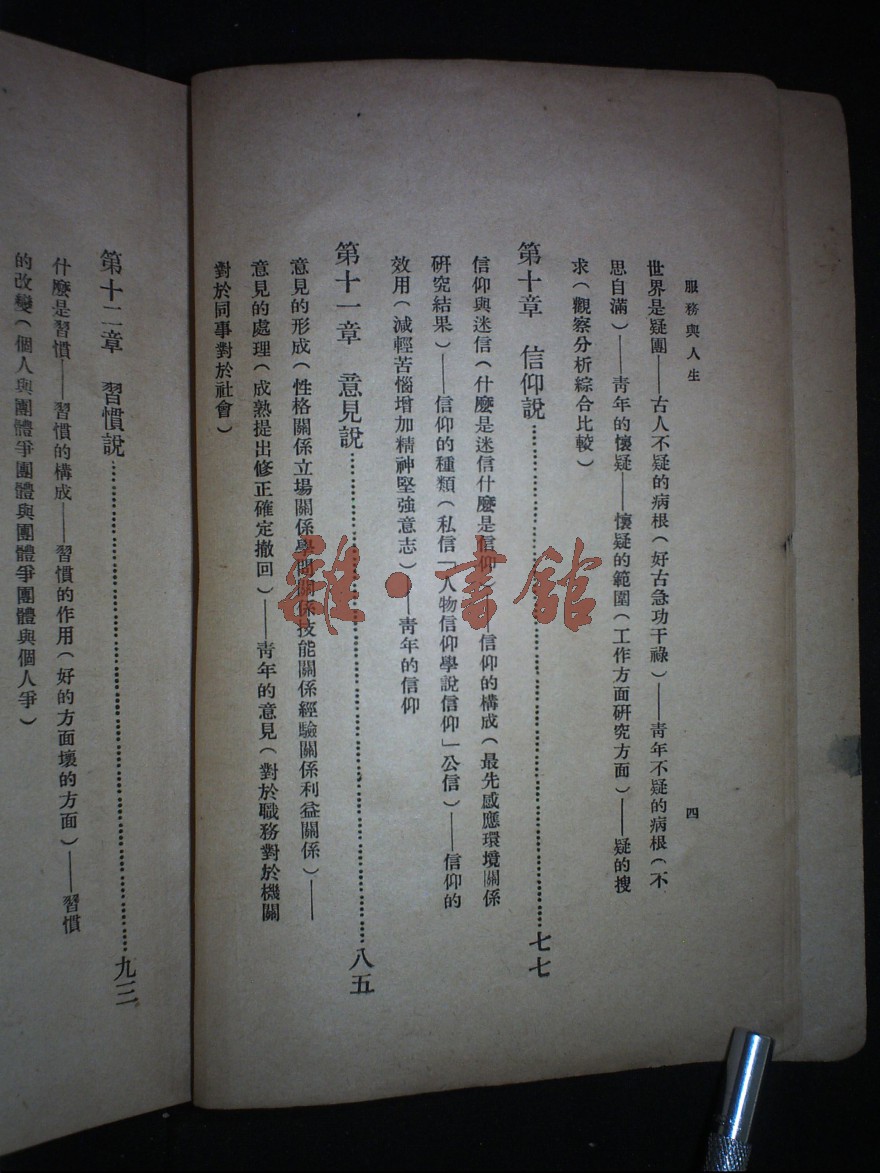 服務與人生
四
世界是疑團——古人不疑的病根（好古急功干祿）——靑年不疑的病根（不
思自滿）——靑年的懷疑——懷疑的範圍（工作方面研究方面）——疑的搜
求（觀察分析綜合比較）
第十章 信仰說……七七
信仰與迷信（什麼是迷信什麼是信仰）——信仰的構成（最先感應環境關係
研究結果）——信仰的種類（私信「人物信仰學說信仰」公信）——信仰的
效用（減輕苦惱增加精神堅強意志）——靑年的信仰
第十一章 意見說……八五
意見的形成（性格關係立場關係學問關係技能關係經驗關係利益關係）——
意見的處理（成熟提出修正確定撤回）——靑年的意見（對於職務對於機關
對於同事對於社會）
第十二章 習慣說……九三
什麼是習慣——習慣的構成——習慣的作用（好的方面壞的方面）——習慣
的改變（個人與團體爭團體與團體爭團體與個人爭）
雜·書館